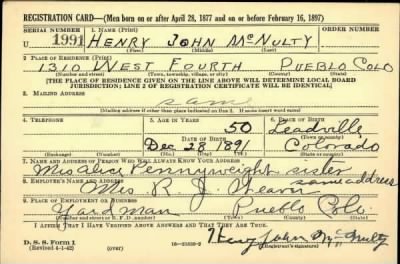 REGISTRATION CARD—(Men born on or after April 28, 1877 and on or before February 16, 1897)
SERIAL NUMBER 1. NAME (Print) ORDER NUMBER
U 1991 HENRY JOHN McNULTY
(First) (Middle) (Last)
2. PLACE OF RESIDENCE (Print)
1310 WEST FOURTH PUEBLO COLO
(Number and street) (Town, township, village, or city) (County) (State)
[THE PLACE OF RESIDENCE GIVEN ON THE LINE ABOVE WILL DETERMINE LOCAL BOARD
JURISDICTION; LINE 2 OF REGISTRATION CERTIFICATE WILL BE IDENTICAL]
3. MAILING ADDRESS
same
[Mailing address if other than place indicated on line 2. If same insert word same]
4. TELEPHONE 5. AGE IN YEARS 6. PLACE OF BIRTH
50 Leadville
DATE OF BIRTH (Town or county)
Dec 28, 1891 Colorado
(Exchange) (Number) (Mo.) (Day) (Yr.) (State or country)
7. NAME AND ADDRESS OF PERSON WHO WILL ALWAYS KNOW YOUR ADDRESS
Mrs Alice Pennyweight sister
8. EMPLOYER'S NAME AND ADDRESS same address
Mrs. R. J.
9. PLACE OF EMPLOYMENT OR BUSINESS
Yardman Pueblo Colo.
(Number and street or R. F. D. number) (Town) (County) (State)
I AFFIRM THAT I HAVE VERIFIED ABOVE ANSWERS AND THAT THEY ARE TRUE.
D. S. S. Form 1 Henry John McNulty
(Revised 4-1-42) (over) (Registrant's signature)